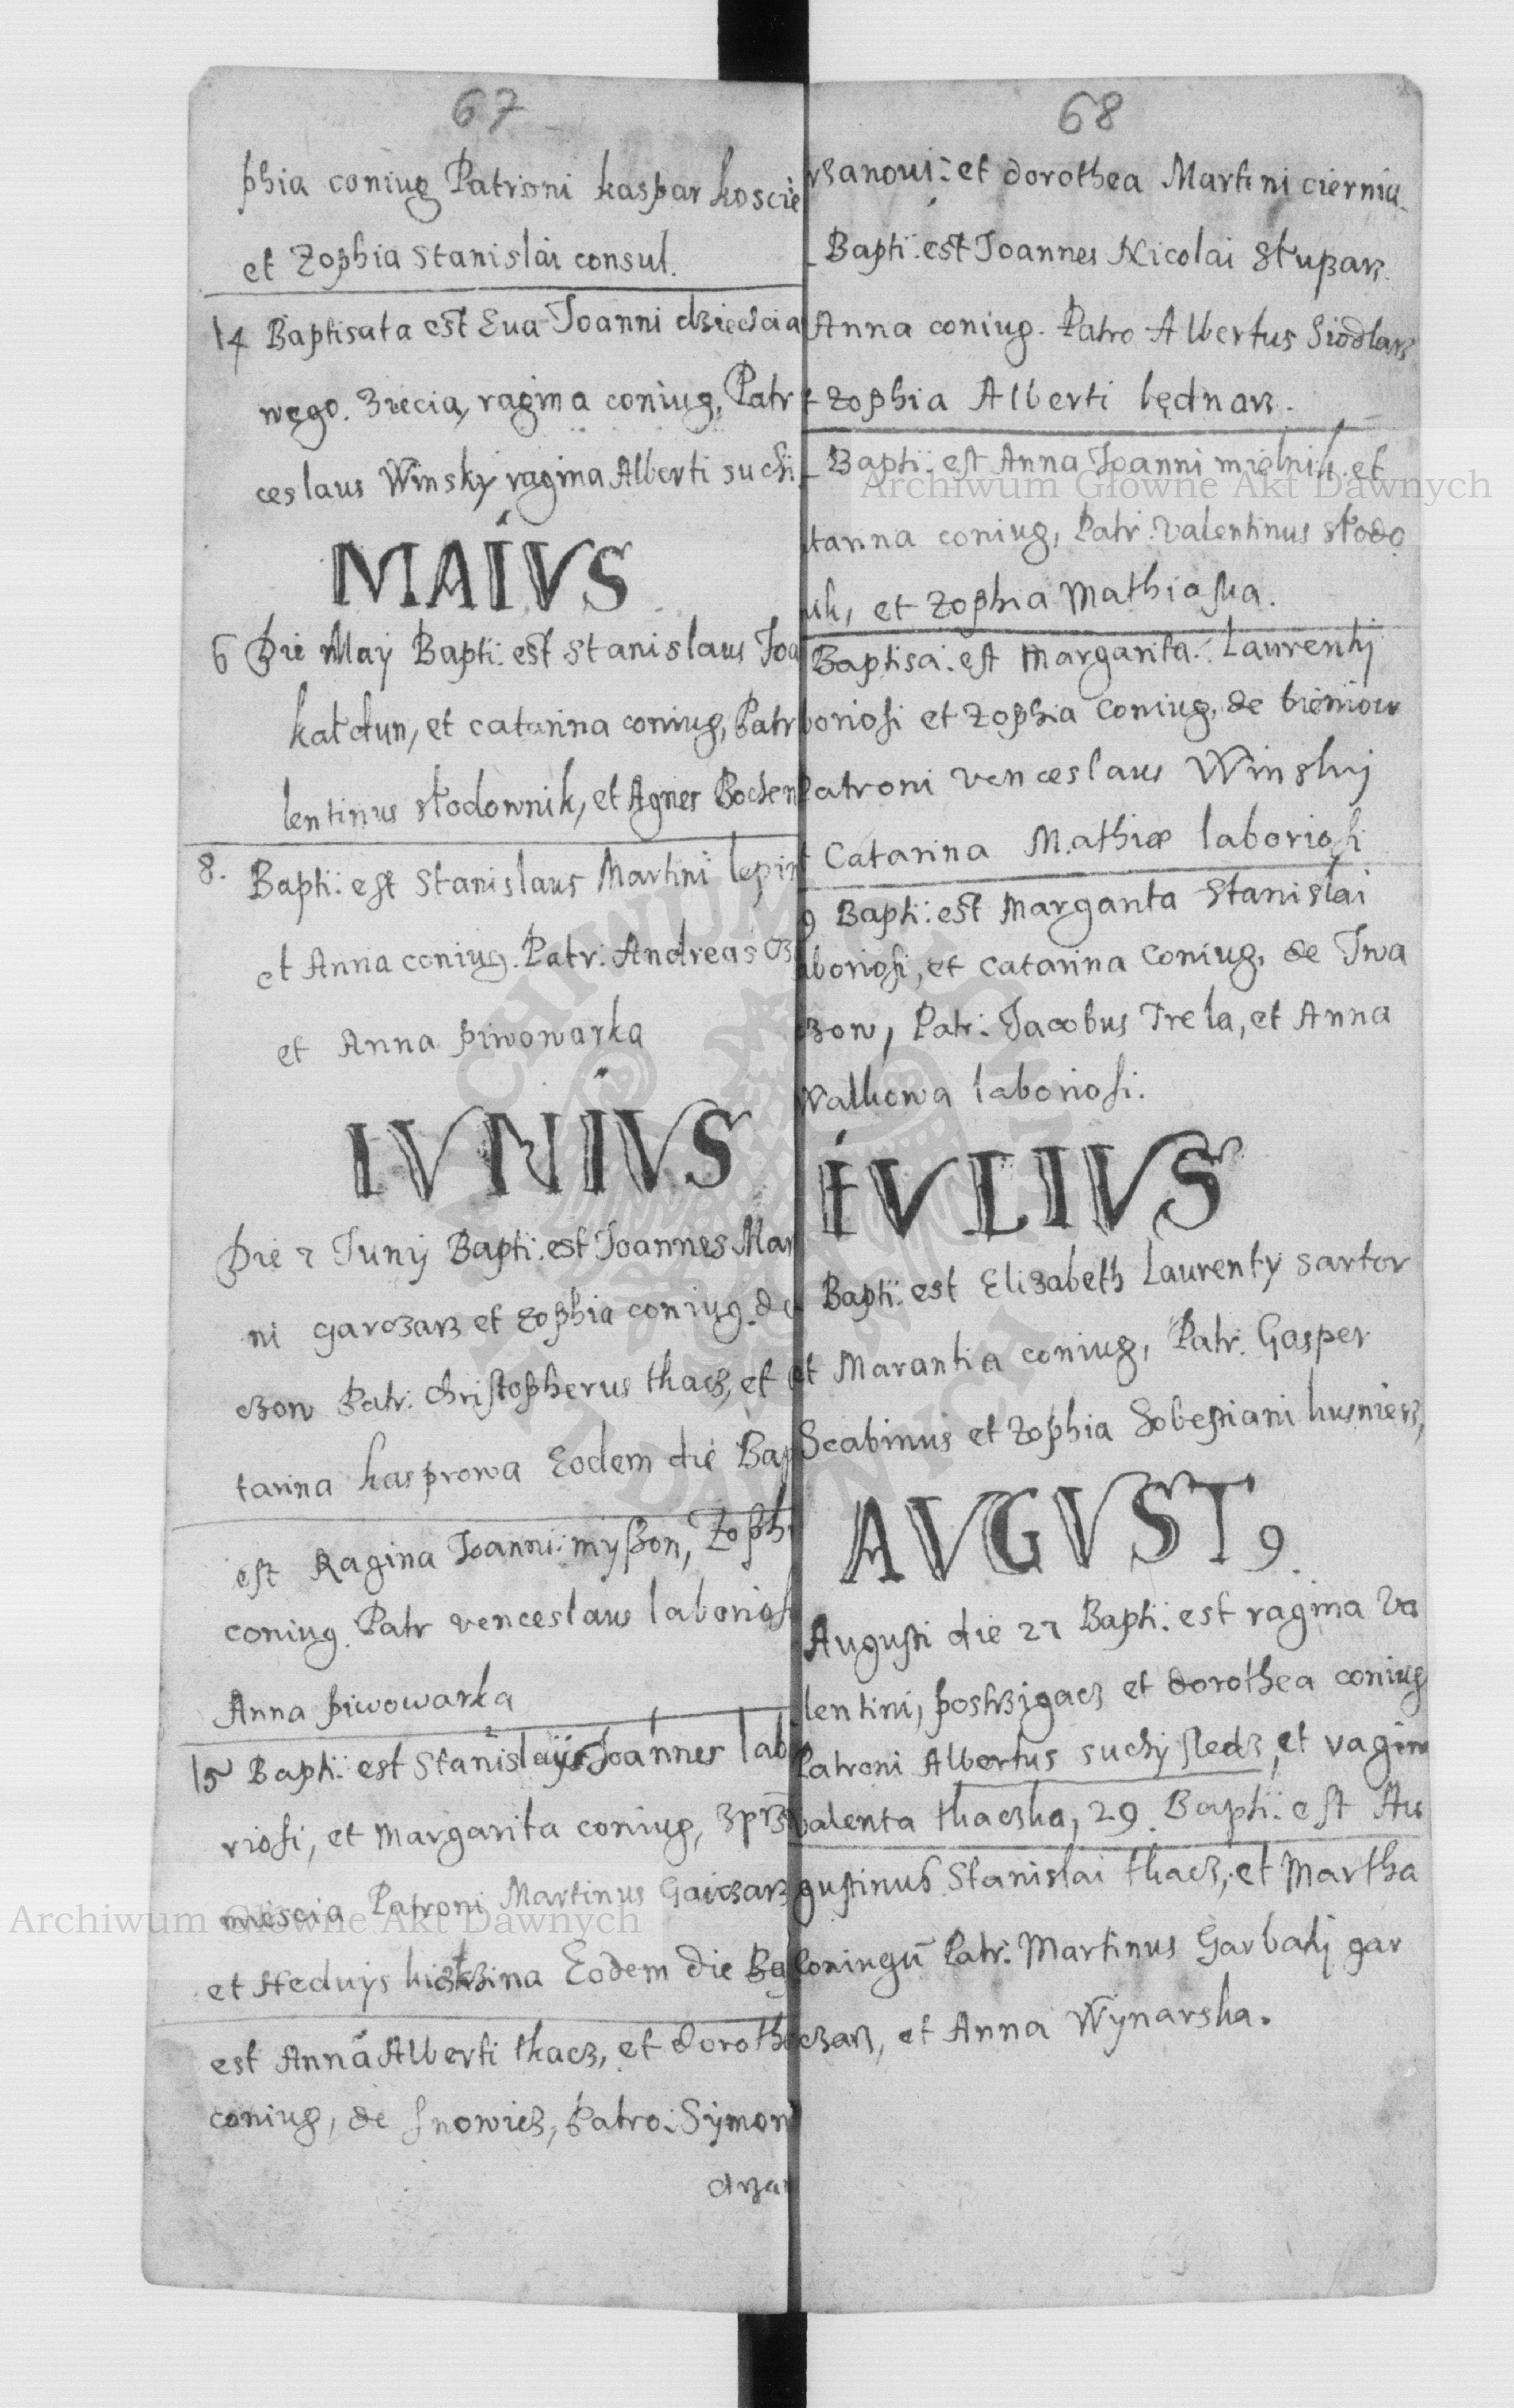 67
phia coniug Patroni kaspar koscie
et Zophia Stanislai consul.
14 Baptisata est Eua Joanni dzieciia
wego. Ziecia, ragina coniug, Patr
ceslaus Winsky ragina Alberti suchi
MAIVS
6 Die May Bapti: est Stanislaus Joa
katdun, et catarina coniug, Patr
lentinus słodownik, et Agnes Bochen
8. Bapti: est Stanislaus Martini lepi
et Anna coniug. Patr: Andreas
et Anna piwowarka
IVNIVS
Die 7 Junij Bapti: est Joannes Mar
ni garczarz et zophia coniug. de
czow Patr: christopherus tkacz, et
tarina kasprowa Eodem die Bap
est Ragina Joanni: myßon, Zophi
coniug. Patr venceslaus laborios
Anna piwowarka
15 Bapti: est Stanislaus Joannes lab
riosi, et Margarita coniug, zprz
miescia Patroni Martinus Garczarz
et Heduijs Eodem die Ba
est Anna Alberti tkacz, et dorothe
coniug, de snowicz, Patro: Symon
drzar
68
rzanoui: et dorothea Martini ciernia
Bapti: est Joannes Nicolai Stuparz.
Anna coniug. Patro Albertus Siodlarz
t Zophia Alberti będnarz.
Bapti: est Anna Joanni mielnik et
tarina coniug, Patr: valentinus słodo
nik, et Zophia Mathiaska.
Baptisa: est Margarita: Laurentij
boriosi et Zophia coniug, de bieniow
Patroni venceslaus Winskij
t Catarina Mathiæ laboriosi
9 Bapti: est Margarita Stanislai
aboriosi, et catarina coniug, de Iwa
czow, Patr: Jacobus Trela, et Anna
Walkowa laboriosi.
IVLIVS
Bapti: est Elizabeth Laurenty sartor
et Marantia coniug, Patr: Gasper
Scabinus et zophia Sobestiani kusnierz,
AVGVST9.
Augusti die 27 Bapti: est ragina Va
lentini, postrzigacz et dorothea coniug
Patroni Albertus suchy sledz, et ragin
valenta tkaczka, 29. Bapti: est Au
gustinus Stanislai tkacz, et Martha
Coniugū Patr: Martinus Garbatij gar
czarz, et Anna Wynarska.
Archiwum Główne Akt Dawnych
Archiwum Główne Akt Dawnych